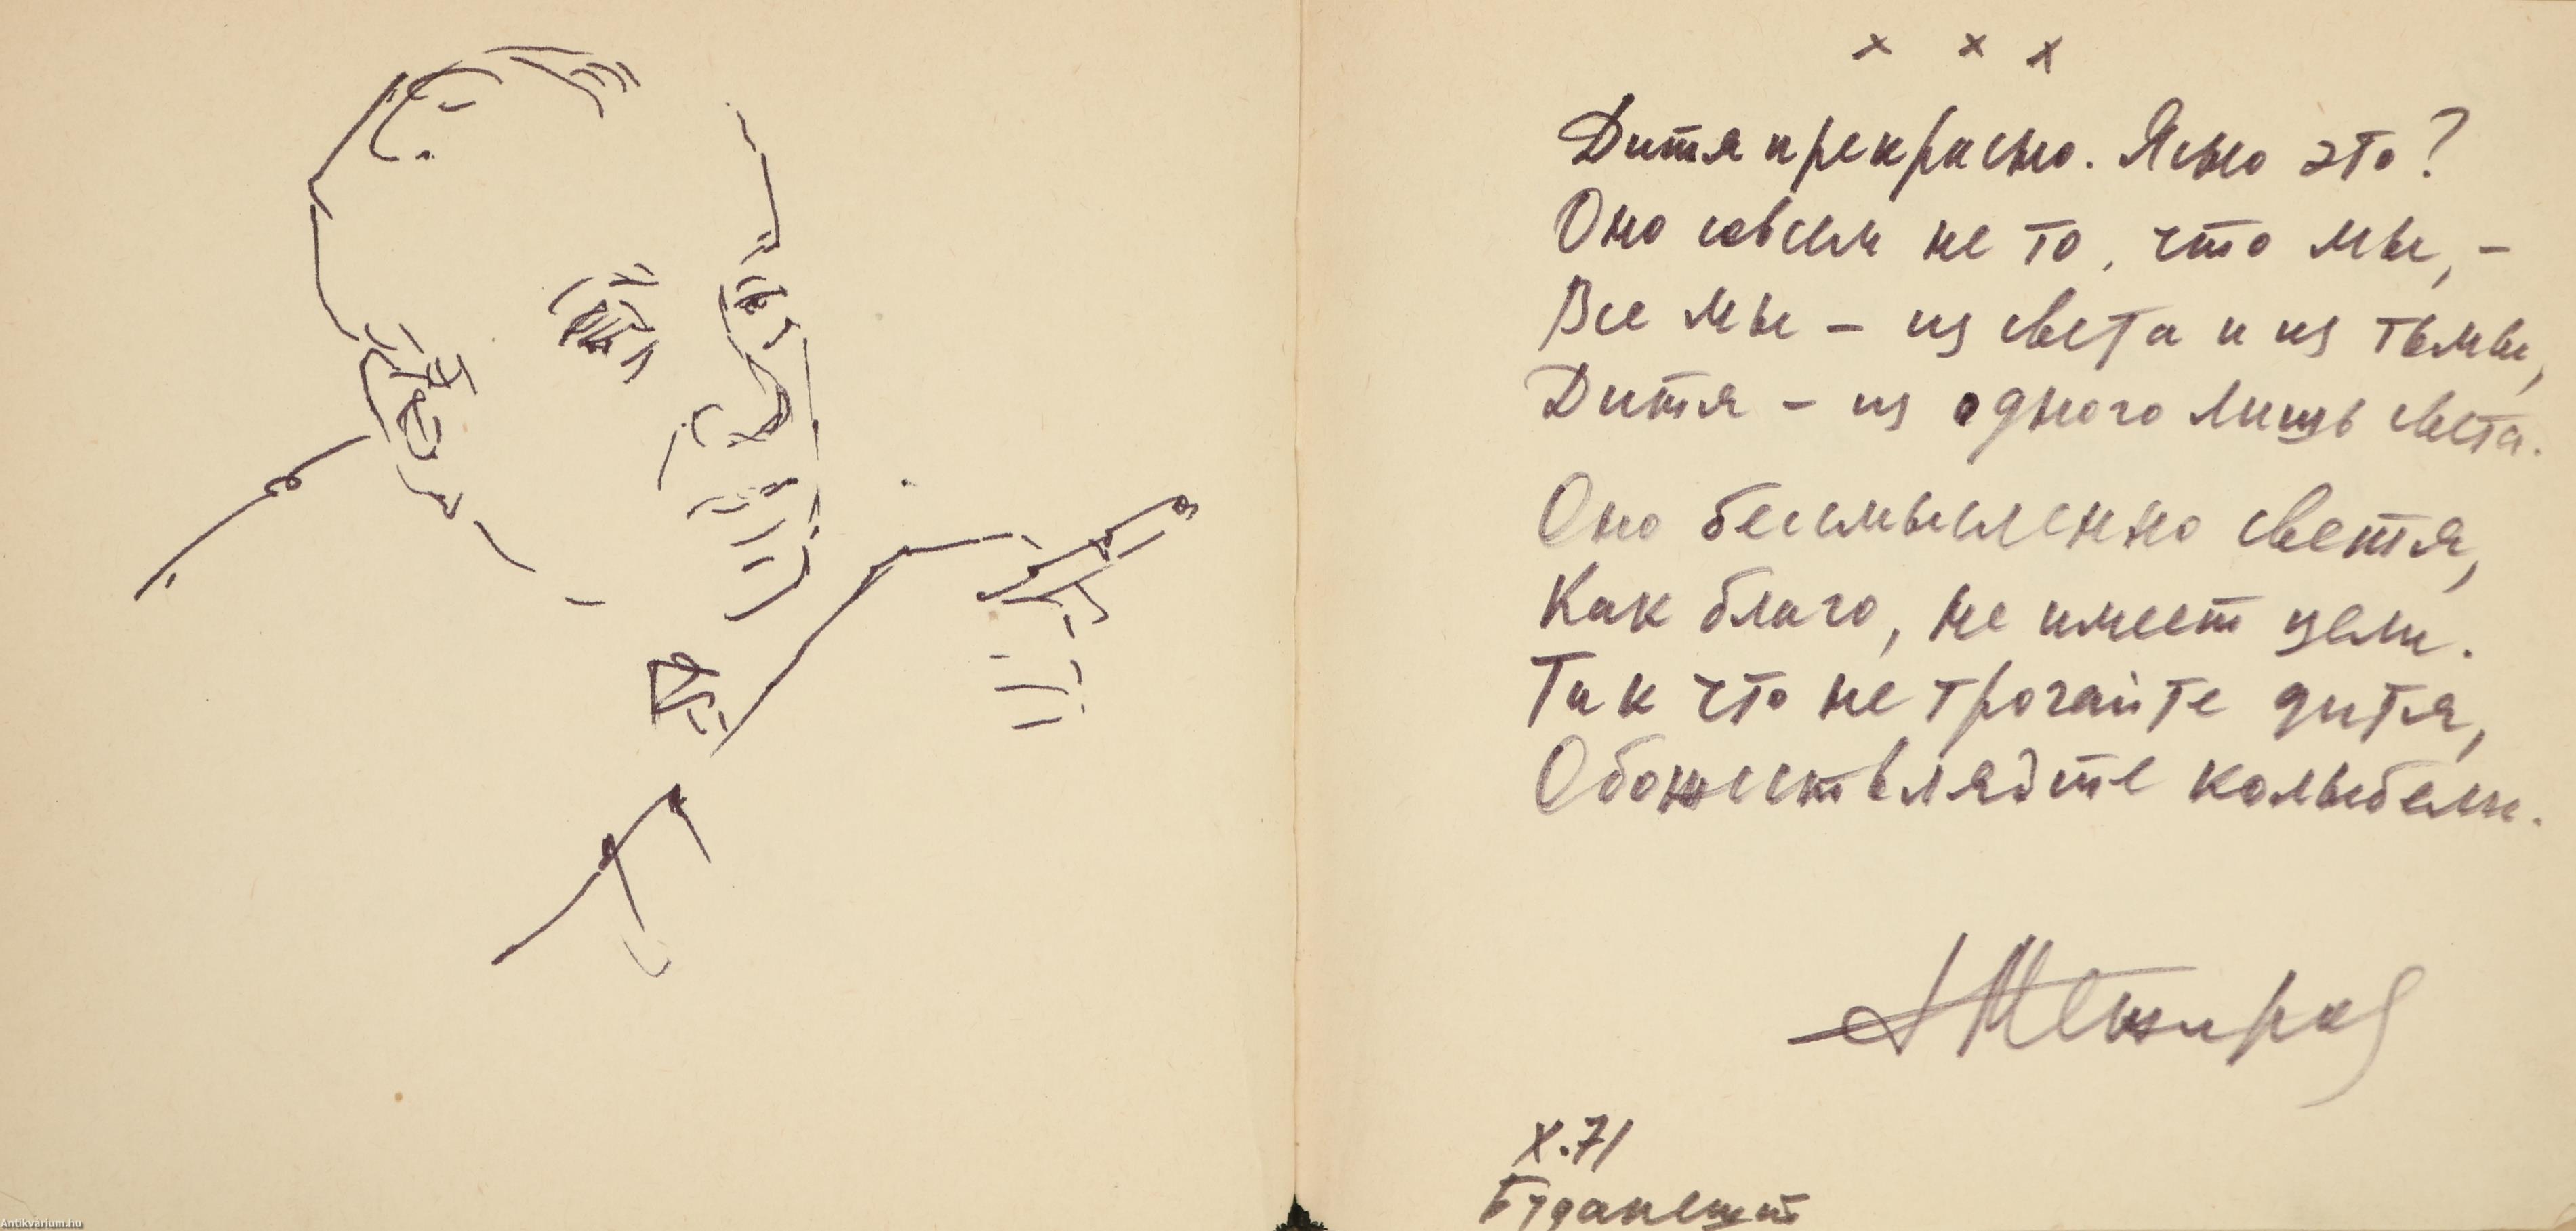 x x x
Дитя прекрасно. Ясно это?
Оно совсем не то, что мы, –
Все мы – из света и из тьмы,
Дитя – из одного лишь света.
Оно бессмысленно светя,
Как благо, не имеет цели.
Так что не трогайте дитя,
Обожествляйте колыбели.
А Межиров
X.71
Будапешт
Antikvárium.hu